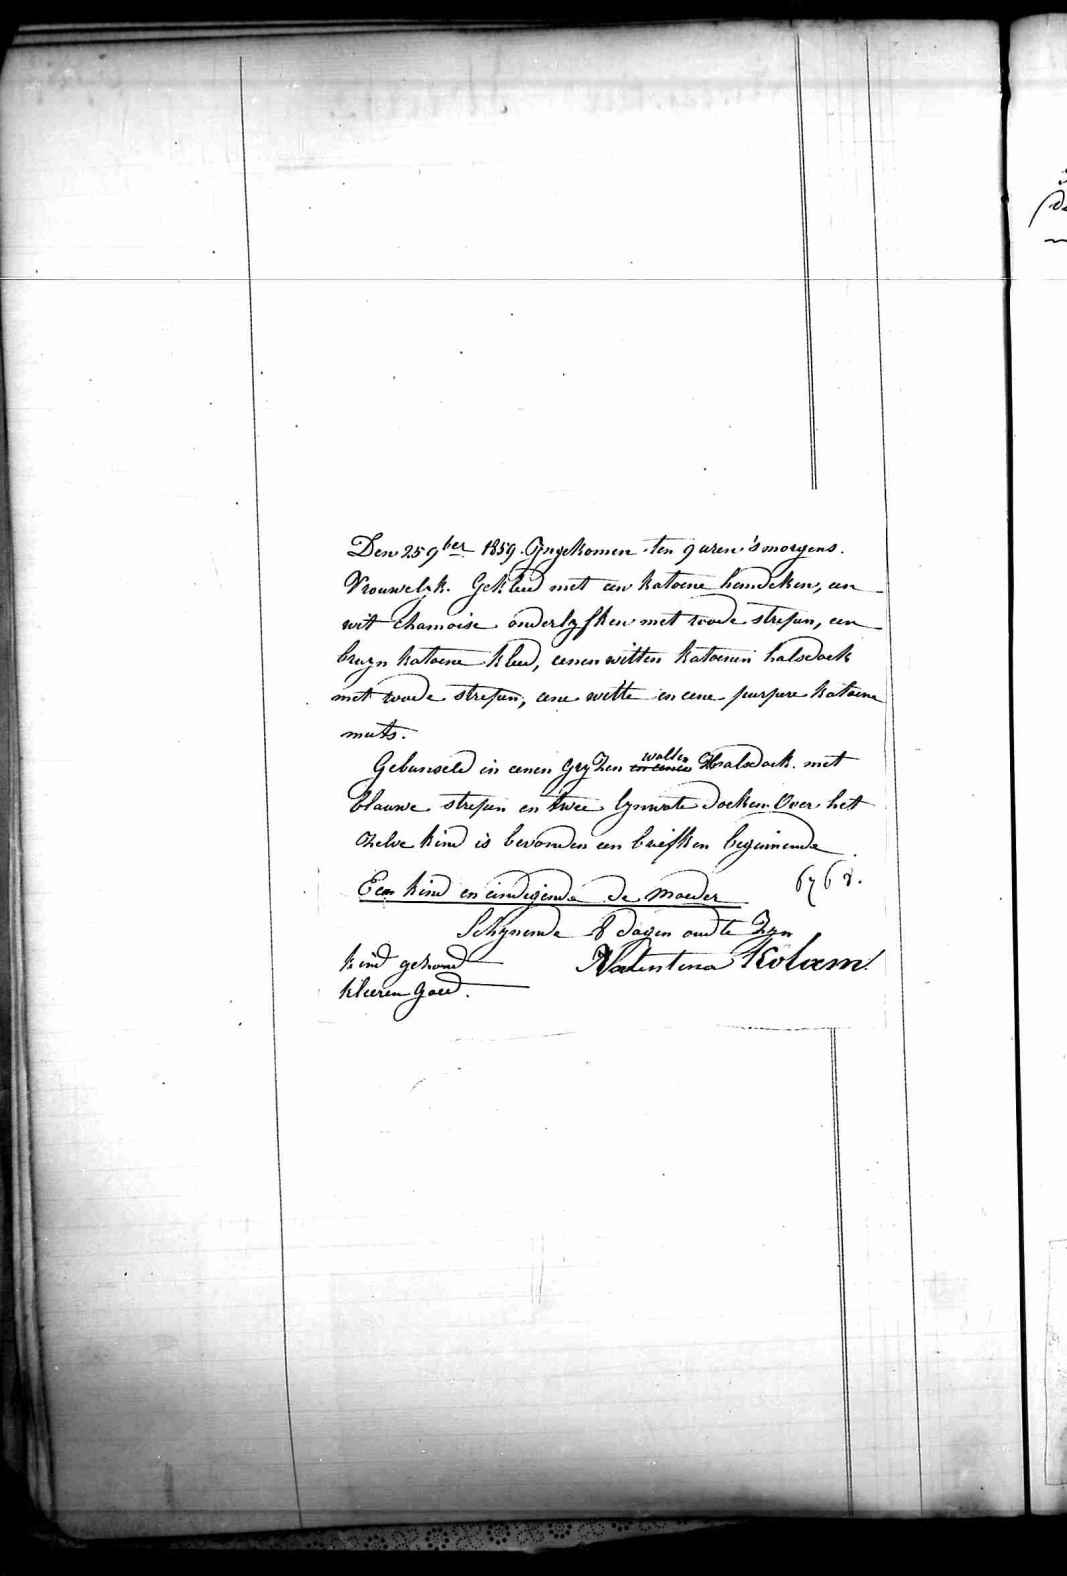 Den 25 9ber 1859. Yngekomen ten 9 uren 'smorgens.
Vrouwelyk. Gekleed met een katoene hemdeken, een
wit chamoise onderlyfken met roode strepen, een
bruyn katoene kleed, eenen witten katoenen halsdoek
met roode strepen, eene witte en eene purpure katoene
muts.
Gebunseld in eenen gryzen wollen halsdoek met
blauwe strepen en twee lynwate doeken. Over het
zelve kind is bevonden een briefken beginnende
Een kind en eindigende de moeder 6768.
Schynende 8 dagen oud te zyn
kind gezond Valentina Kolam.
kleeren goed.